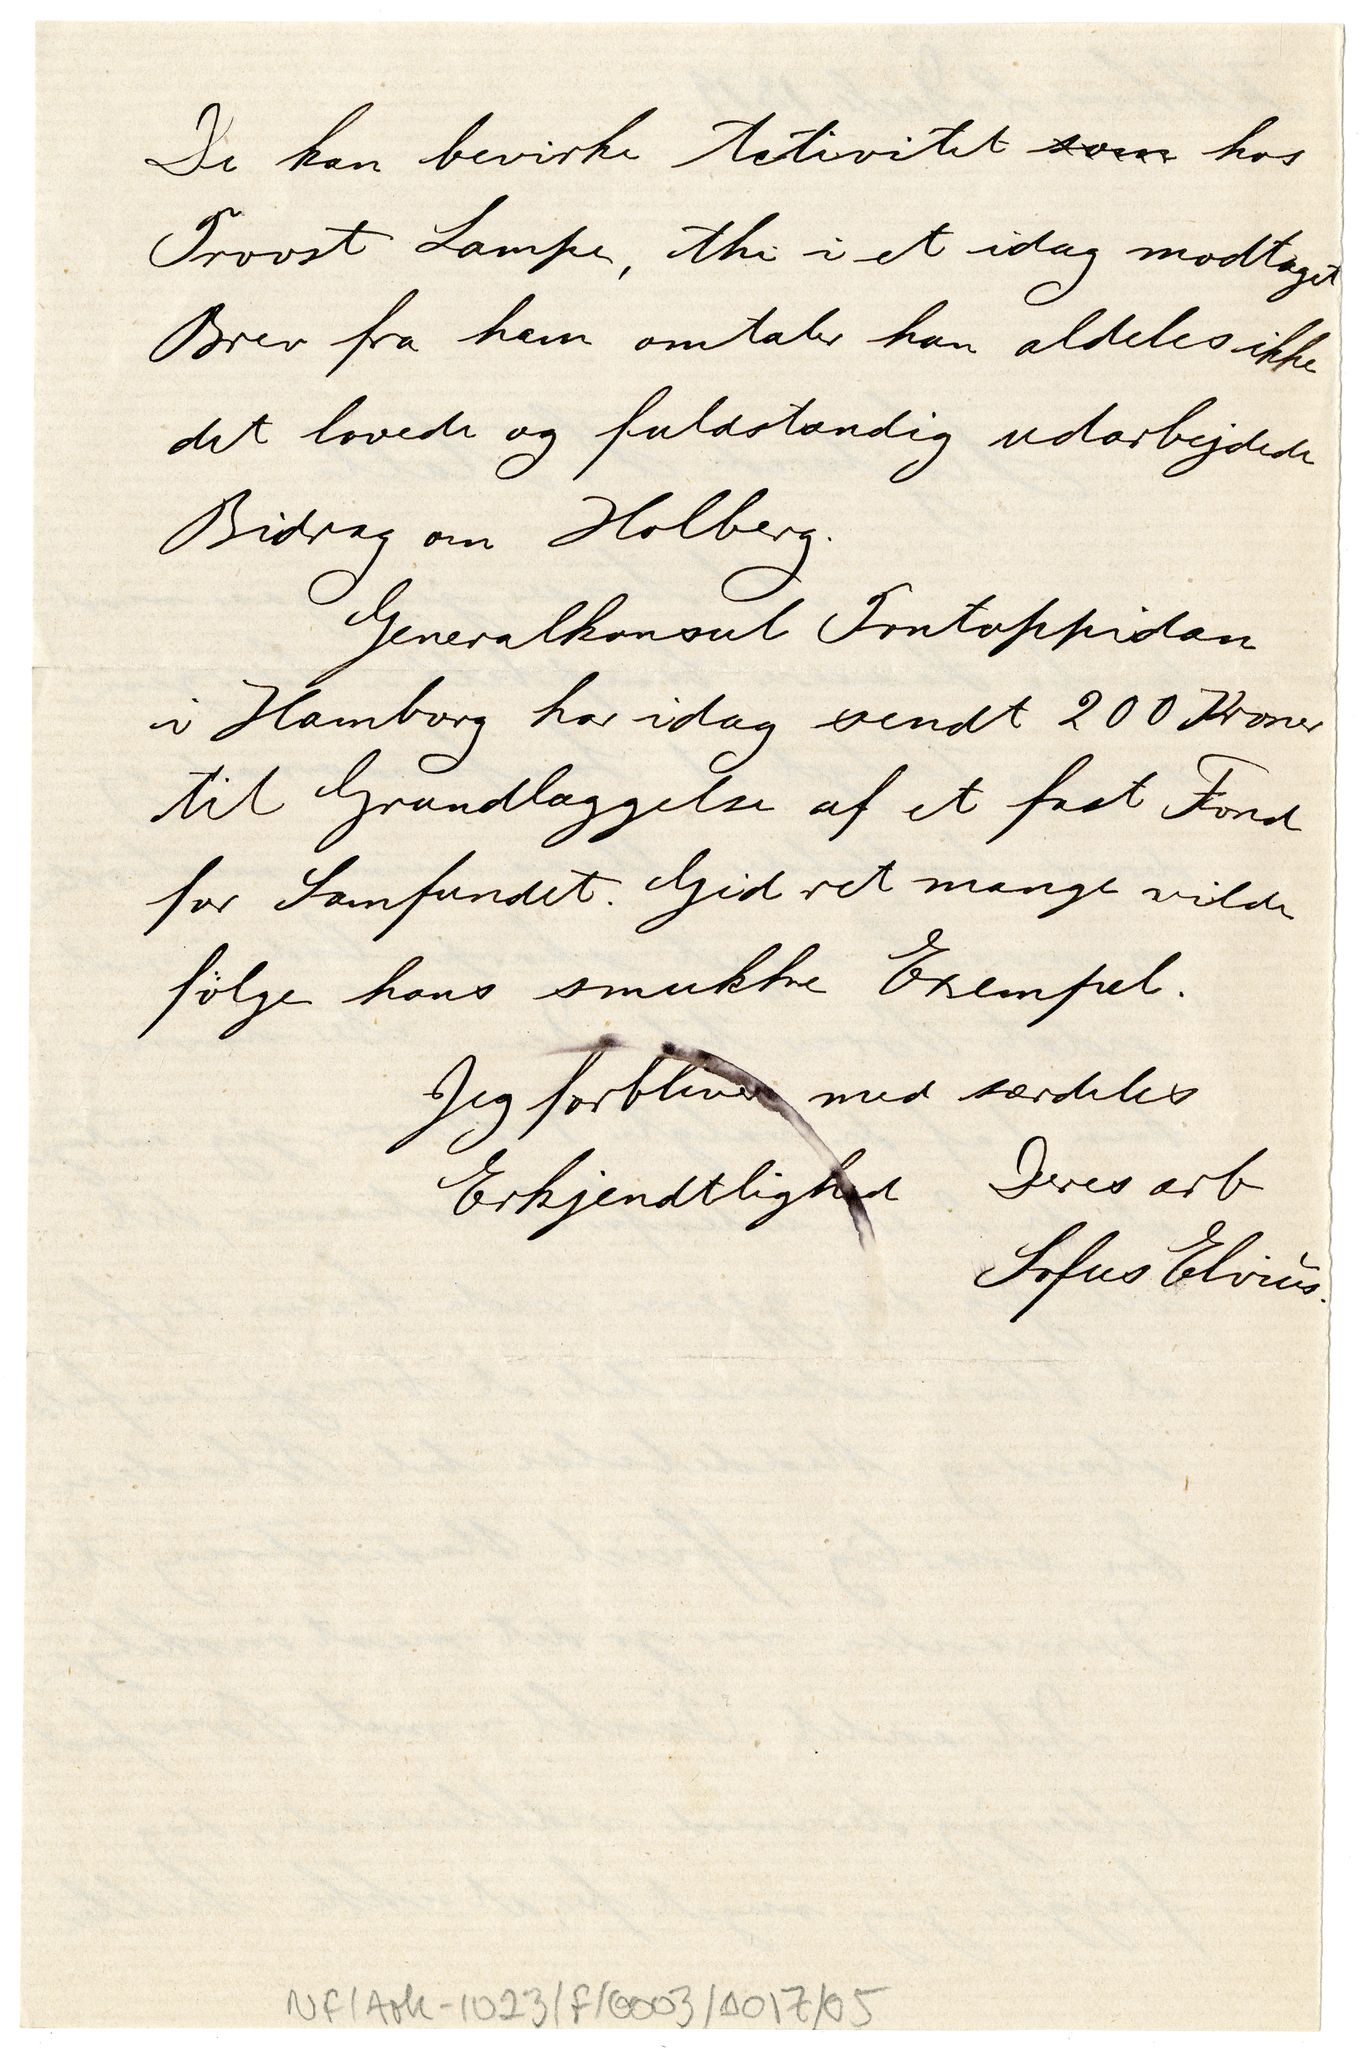 De kan bevirke Activitet som hos
Provst Lampe, thi i et idag modtaget
Brev fra ham omtaler han aldeles ikke
det lovede og fuldstændig udarbejdede
Bidrag om Holberg.
Generalkonsul Pontoppidan
i Hamborg har idag sendt 200 Kroner
til Grundlæggelse af et fast Fond
for Samfundet. Gid ret mange vilde
følge hans smukke Exempel.
Jeg forbliver med særdeles
Erkjendtlighed Deres arb
Sofus Elvius.
NF/Ark-1023/F/0003/0017/05